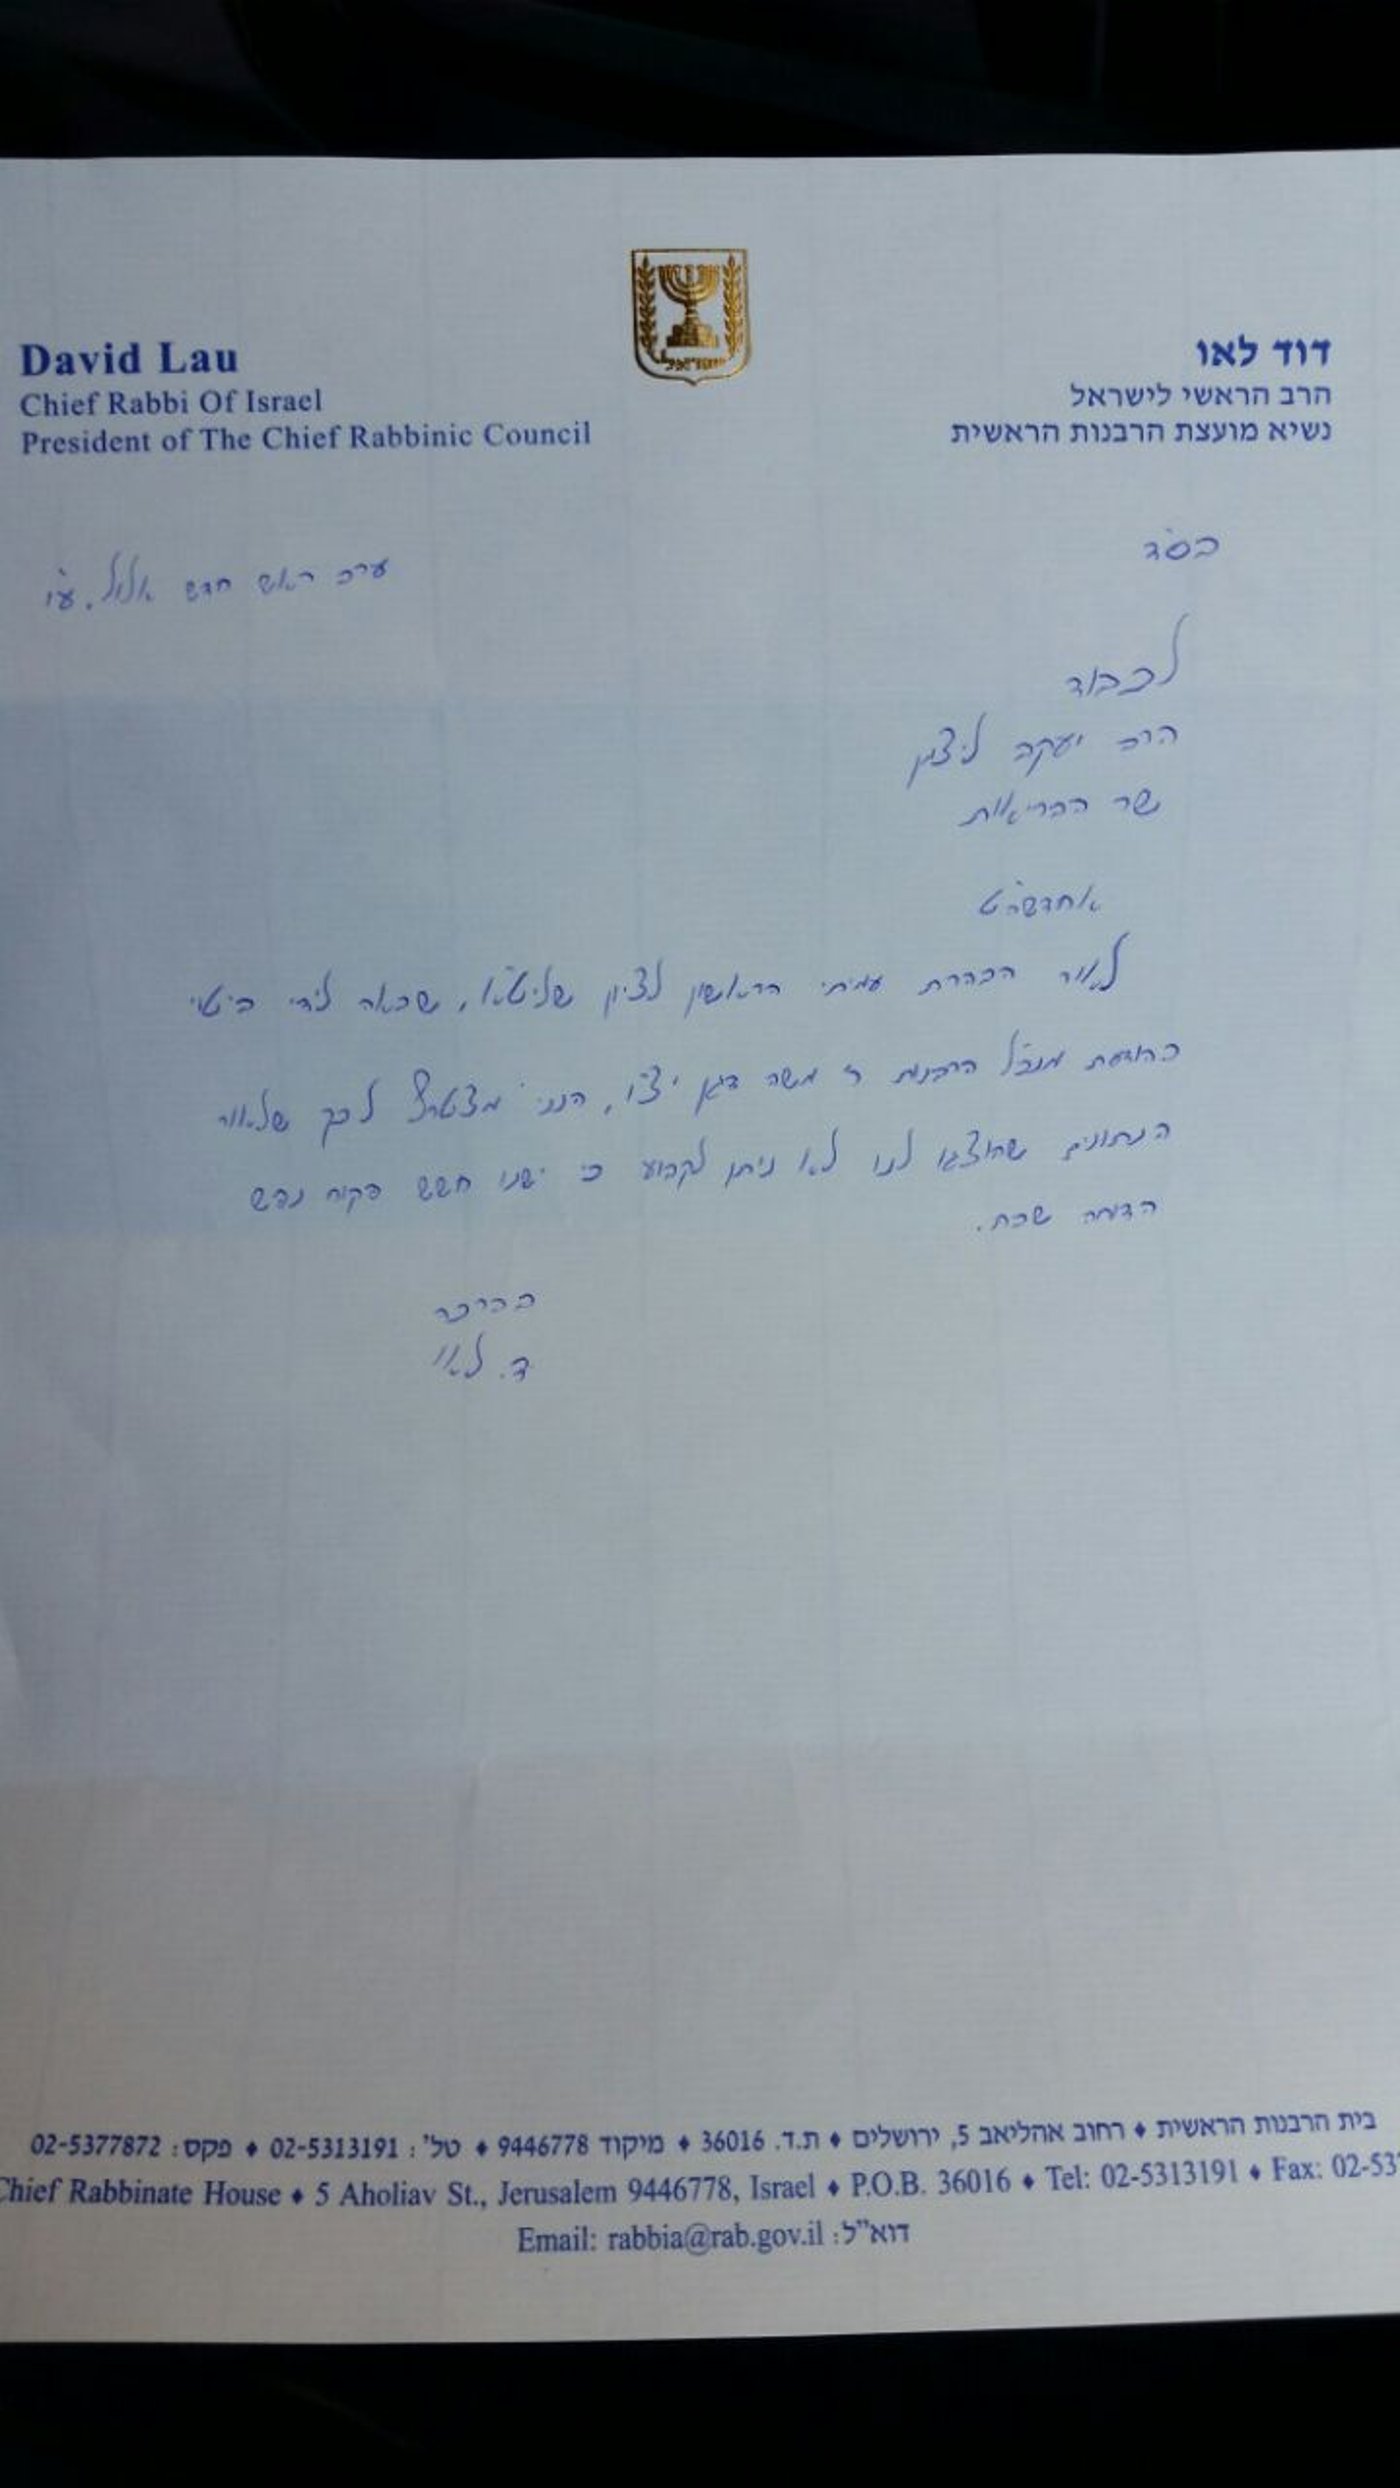 David Lau
Chief Rabbi Of Israel
President of The Chief Rabbinic Council
ישראל
דוד לאו
הרב הראשי לישראל
נשיא מועצת הרבנות הראשית
בס"ד
ערב ראש חדש אלול, ע"ו
לכבוד
הרב יעקב ליצמן
שר הבריאות
אחדשה"ט
לאור הבהרת עמיתי הראשון לציון שליט"א, שבאה לידי ביטוי
בהודעת מנכ"ל הרבנות ר' משה דגן יצ"ו, הנני מצטרף לכך שלאור
הנתונים שהוצגו לנו לא ניתן לקבוע כי ישנו חשש פקוח נפש
הדוחה שבת.
בברכה
ד. לאו
בית הרבנות הראשית ♦ רחוב אהליאב 5, ירושלים ♦ ת.ד. 36016 ♦ מיקוד 9446778 ♦ טל': 02-5313191 ♦ פקס: 02-5377872
Chief Rabbinate House ♦ 5 Aholiav St., Jerusalem 9446778, Israel ♦ P.O.B. 36016 ♦ Tel: 02-5313191 ♦ Fax: 02-53
Email: rabbia@rab.gov.il :דוא"ל